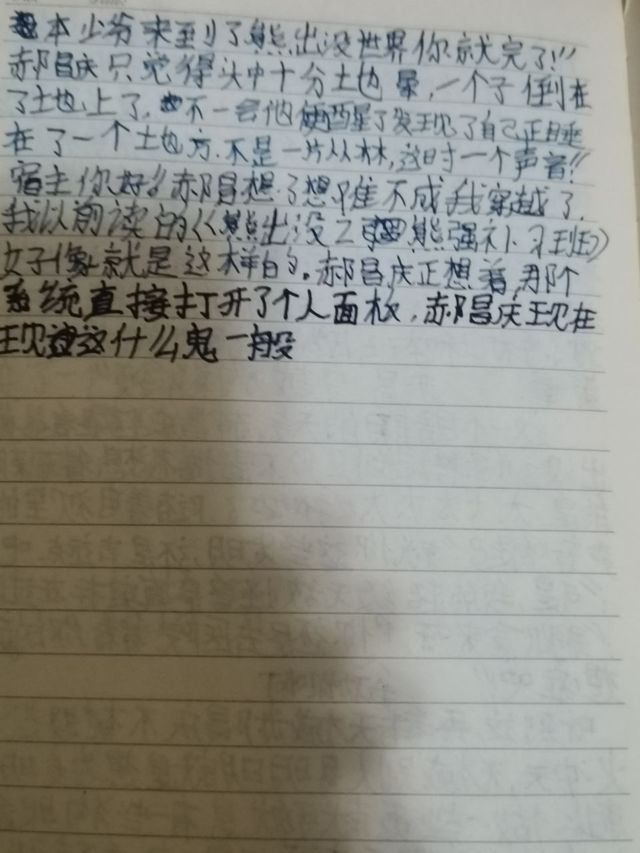 本少爷来到了熊出没世界你就完了!!
郝昌庆只觉得头中十分土也晕,一个子倒在
了土也上了,不一会他便醒星了发现了自己正睡
在了一个土也方.不是一片丛林,这时一个声音!!
宿主你好!!郝昌想了想难不成我穿越了,
我以前读的《熊出没之熊强补习班》
好像就是这样的.郝昌庆正想着,那个
系统直接打开了个人面板.郝昌庆现在
现这什么鬼一般